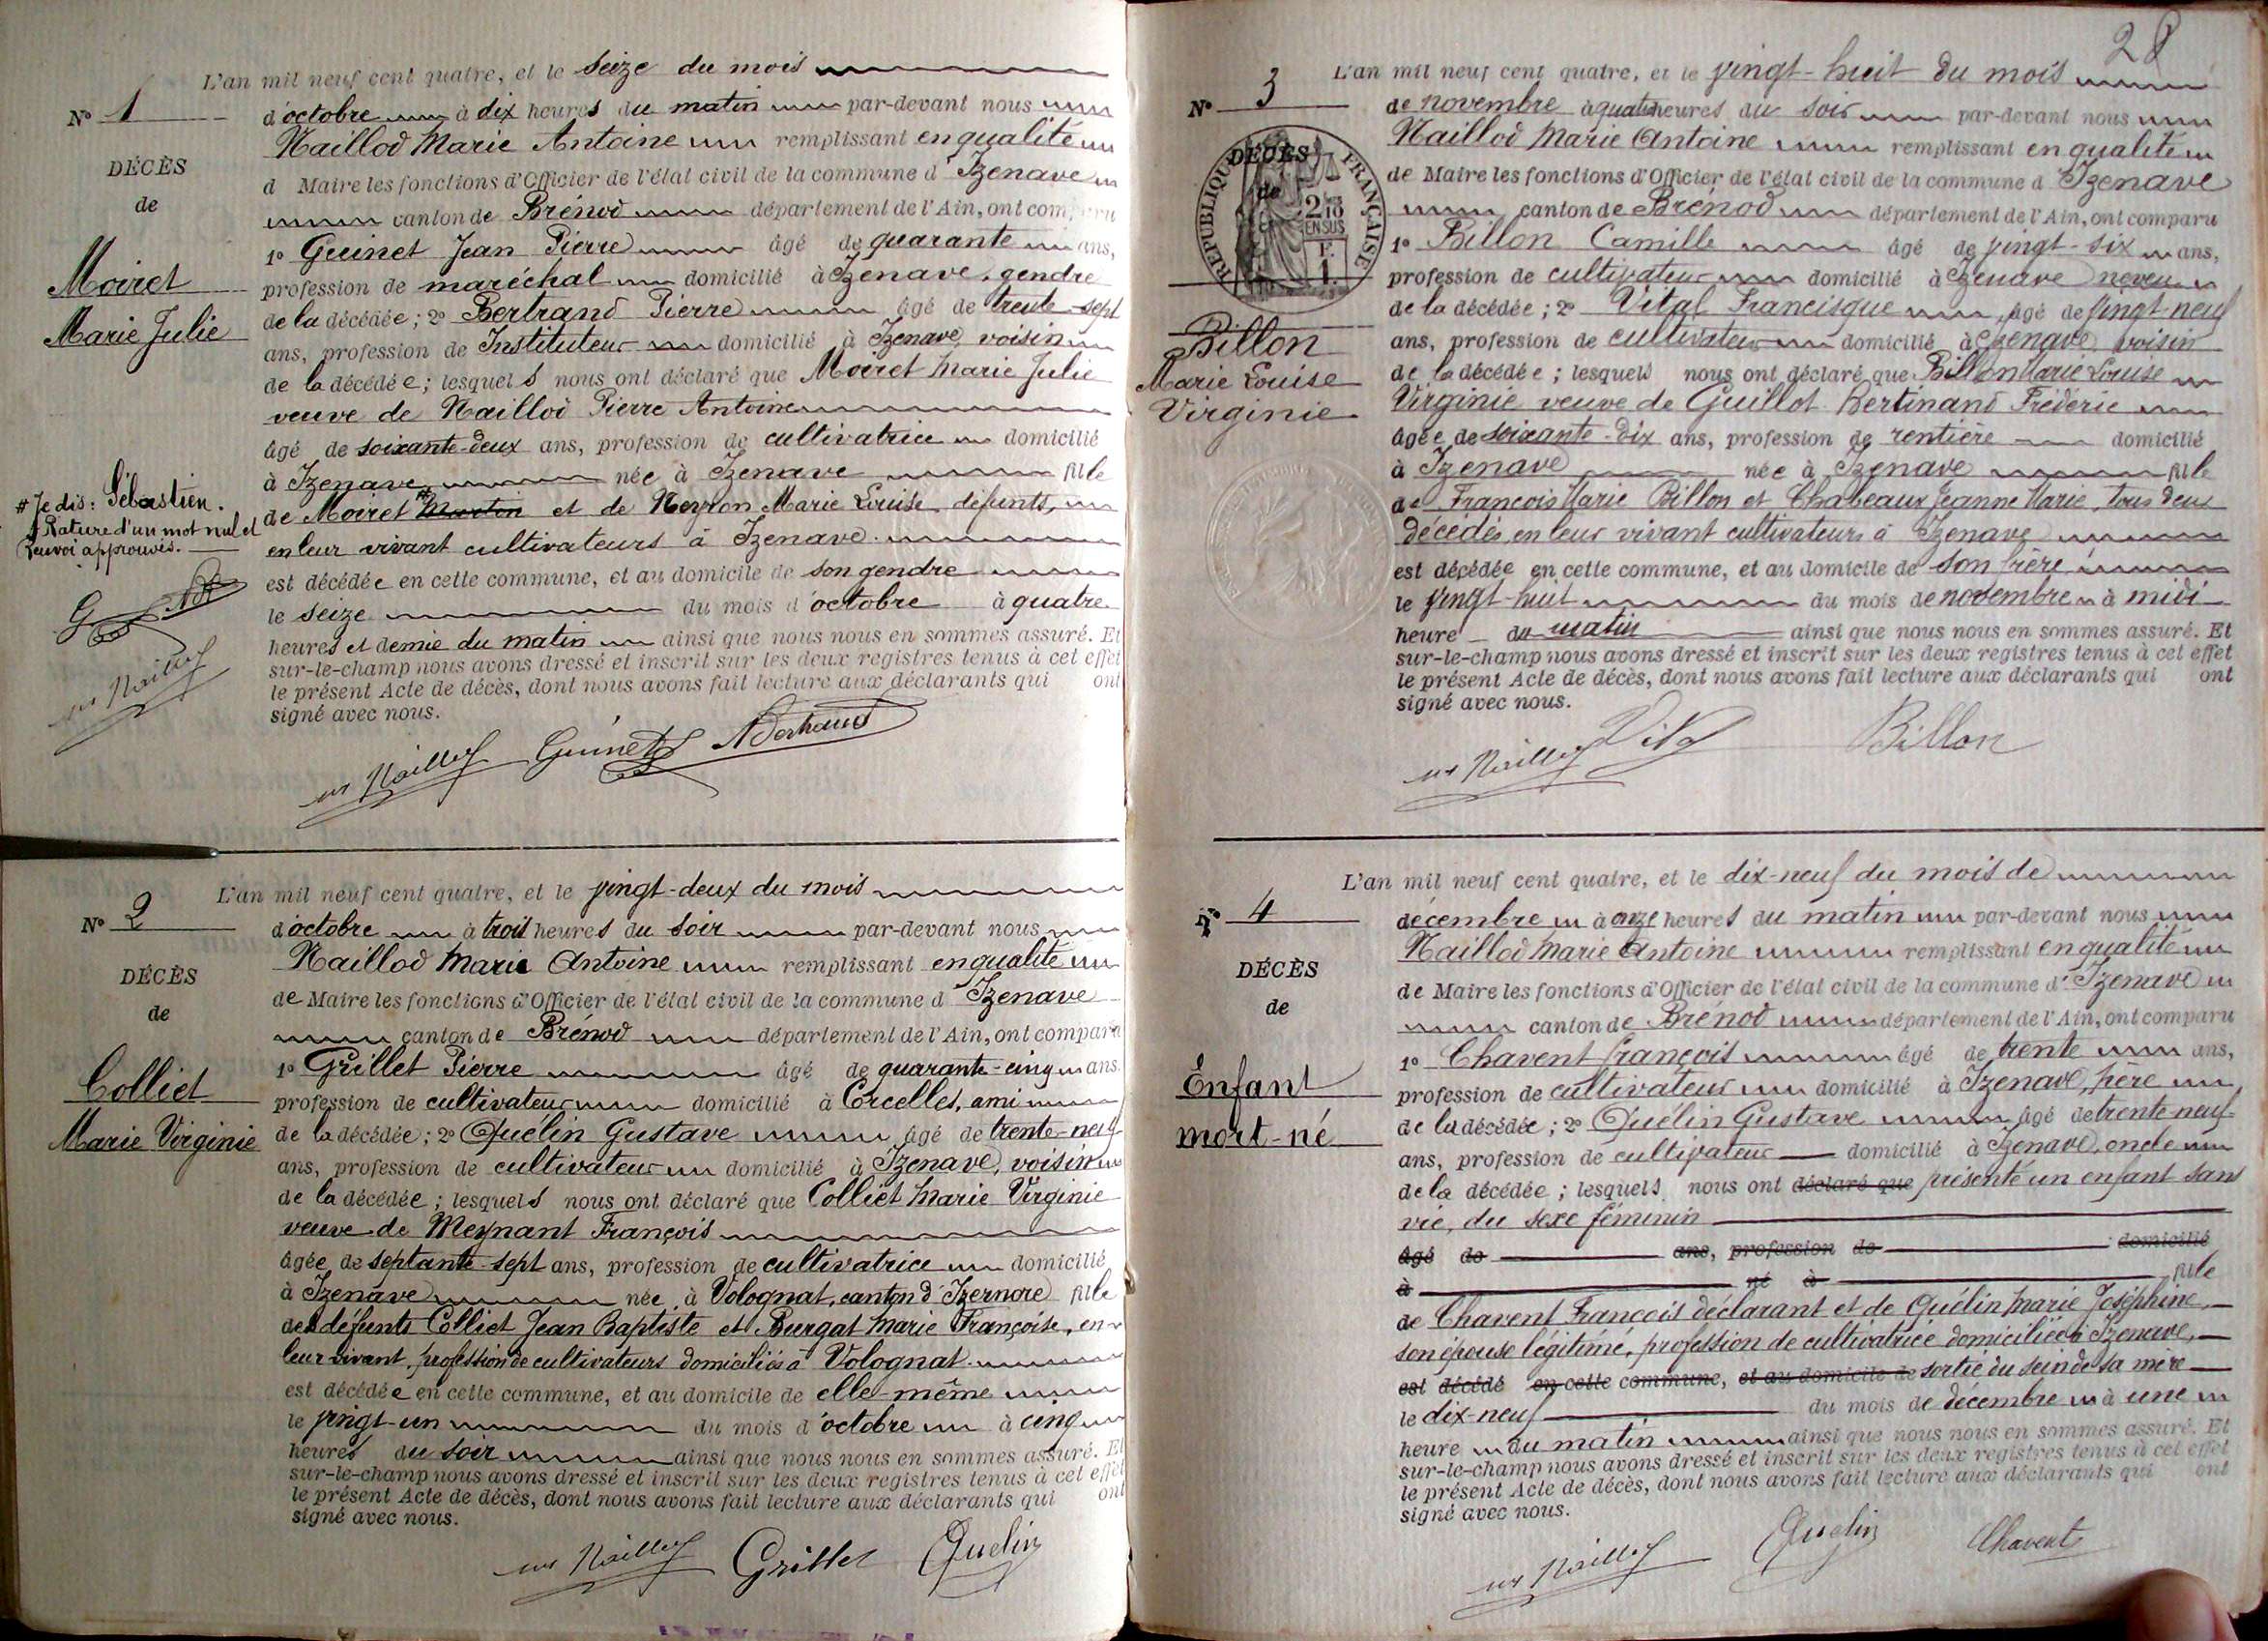 L'an mil neuf cent quatre, et le seize du mois
N° 1
d'octobre à dix heures du matin par-devant nous
Naillod Marie Antoine remplissant en qualité
DÉCÈS
d Maire les fonctions d'Officier de l'état civil de la commune d'Izenave
de
canton de Brénod département de l'Ain, ont comparu
1° Guinet Jean Pierre âgé de quarante ans,
Moiret
profession de maréchal domicilié à Izenave, gendre
Marie Julie
de la décédée ; 2° Bertrand Pierre âgé de trente-sept
ans, profession de Instituteur domicilié à Izenave, voisin
de la décédée ; lesquels nous ont déclaré que Moiret Marie Julie
veuve de Naillod Pierre Antoine
âgé de soixante-deux ans, profession de cultivatrice domicilié
à Izenave née à Izenave fille
# Je dis : Sébastien.
de Moiret # Martin et de Neyron Marie Louise, défunts,
Rature d'un mot nul et
renvoi approuvés.
en leur vivant cultivateurs à Izenave.
est décédée en cette commune, et au domicile de son gendre
le seize du mois d'octobre à quatre
heures et demie du matin ainsi que nous nous en sommes assuré. Et
sur-le-champ nous avons dressé et inscrit sur les deux registres tenus à cet effet
le présent Acte de décès, dont nous avons fait lecture aux déclarants qui ont
signé avec nous.
Naillod Guinet Bertrand
L'an mil neuf cent quatre, et le vingt-deux du mois
N° 2
d'octobre à trois heures du soir par-devant nous
Naillod Marie Antoine remplissant en qualité
DÉCÈS
de Maire les fonctions d'Officier de l'état civil de la commune d'Izenave
de
canton de Brénod département de l'Ain, ont comparu
1° Grillet Pierre âgé de quarante-cinq ans.
Colliet
profession de cultivateur domicilié à Corcelles, ami
Marie Virginie
de la décédée ; 2° Quélin Gustave âgé de trente-neuf
ans, profession de cultivateur domicilié à Izenave, voisin
de la décédée ; lesquels nous ont déclaré que Colliet Marie Virginie
veuve de Meynant François
âgée de septante-sept ans, profession de cultivatrice domicilié
à Izenave née à Volognat, canton d'Izernore fille
des défunts Colliet Jean Baptiste et Burgat Marie Françoise, en
leur vivant, profession de cultivateurs domiciliés à Volognat.
est décédée en cette commune, et au domicile de elle-même
le vingt-un du mois d'octobre à cinq
heures du soir ainsi que nous nous en sommes assuré. Et
sur-le-champ nous avons dressé et inscrit sur les deux registres tenus à cet effet
le présent Acte de décès, dont nous avons fait lecture aux déclarants qui ont
signé avec nous.
Naillod Grillet Quelin
28
L'an mil neuf cent quatre, et le vingt-huit du mois
N° 3
de novembre à quatre heures du soir par-devant nous
Naillod Marie Antoine remplissant en qualité
DÉCÈS
de
RÉPUBLIQUE FRANÇAISE
2/10 EN SUS
F. 1.
de Maire les fonctions d'Officier de l'état civil de la commune d Izenave
canton de Brénod département de l'Ain, ont comparu
1° Billon Camille âgé de vingt-six ans,
profession de cultivateur domicilié à Izenave neveu
de la décédée ; 2° Vital Francisque âgé de vingt-neuf
Billon
ans, profession de cultivateur domicilié à Izenave voisin
Marie Louise
de la décédée ; lesquels nous ont déclaré que Billon Marie Louise
Virginie
Virginie veuve de Guillot Bertinand Fréderic
âgée de soixante-dix ans, profession de rentière domicilié
à Izenave née à Izenave fille
de François Marie Billon et Chabeaux Jeanne Marie, tous deux
décédés, en leur vivant cultivateurs à Izenave
est décédée en cette commune, et au domicile de son frère
le vingt-huit du mois de novembre à midi
heure du matin ainsi que nous nous en sommes assuré. Et
sur-le-champ nous avons dressé et inscrit sur les deux registres tenus à cet effet
le présent Acte de décès, dont nous avons fait lecture aux déclarants qui ont
signé avec nous.
Naillod Vital Billon
L'an mil neuf cent quatre, et le dix-neuf du mois de
N° 4
décembre à onze heures du matin par-devant nous
Naillod Marie Antoine remplissant en qualité
DÉCÈS
de Maire les fonctions d'Officier de l'état civil de la commune d'Izenave
de
canton de Brénod département de l'Ain, ont comparu
1° Chavent François âgé de trente ans,
Enfant
profession de cultivateur domicilié à Izenave, père
mort-né
de la décédée ; 2° Quélin Gustave âgé de trente-neuf
ans, profession de cultivateur domicilié à Izenave, oncle
de la décédée ; lesquels nous ont déclaré que présenté un enfant sans
vie, du sexe féminin
âgé de ans, profession de domicilié
à né à fille
de Chavent François déclarant et de Quélin Marie Joséphine,
son épouse légitime, profession de cultivatrice domiciliée à Izenave,
est décédé en cette commune, et au domicile de sortie du sein de sa mère
le dix-neuf du mois de décembre à une
heure du matin ainsi que nous nous en sommes assuré. Et
sur-le-champ nous avons dressé et inscrit sur les deux registres tenus à cet effet
le présent Acte de décès, dont nous avons fait lecture aux déclarants qui ont
signé avec nous.
Naillod Quelin Chavent